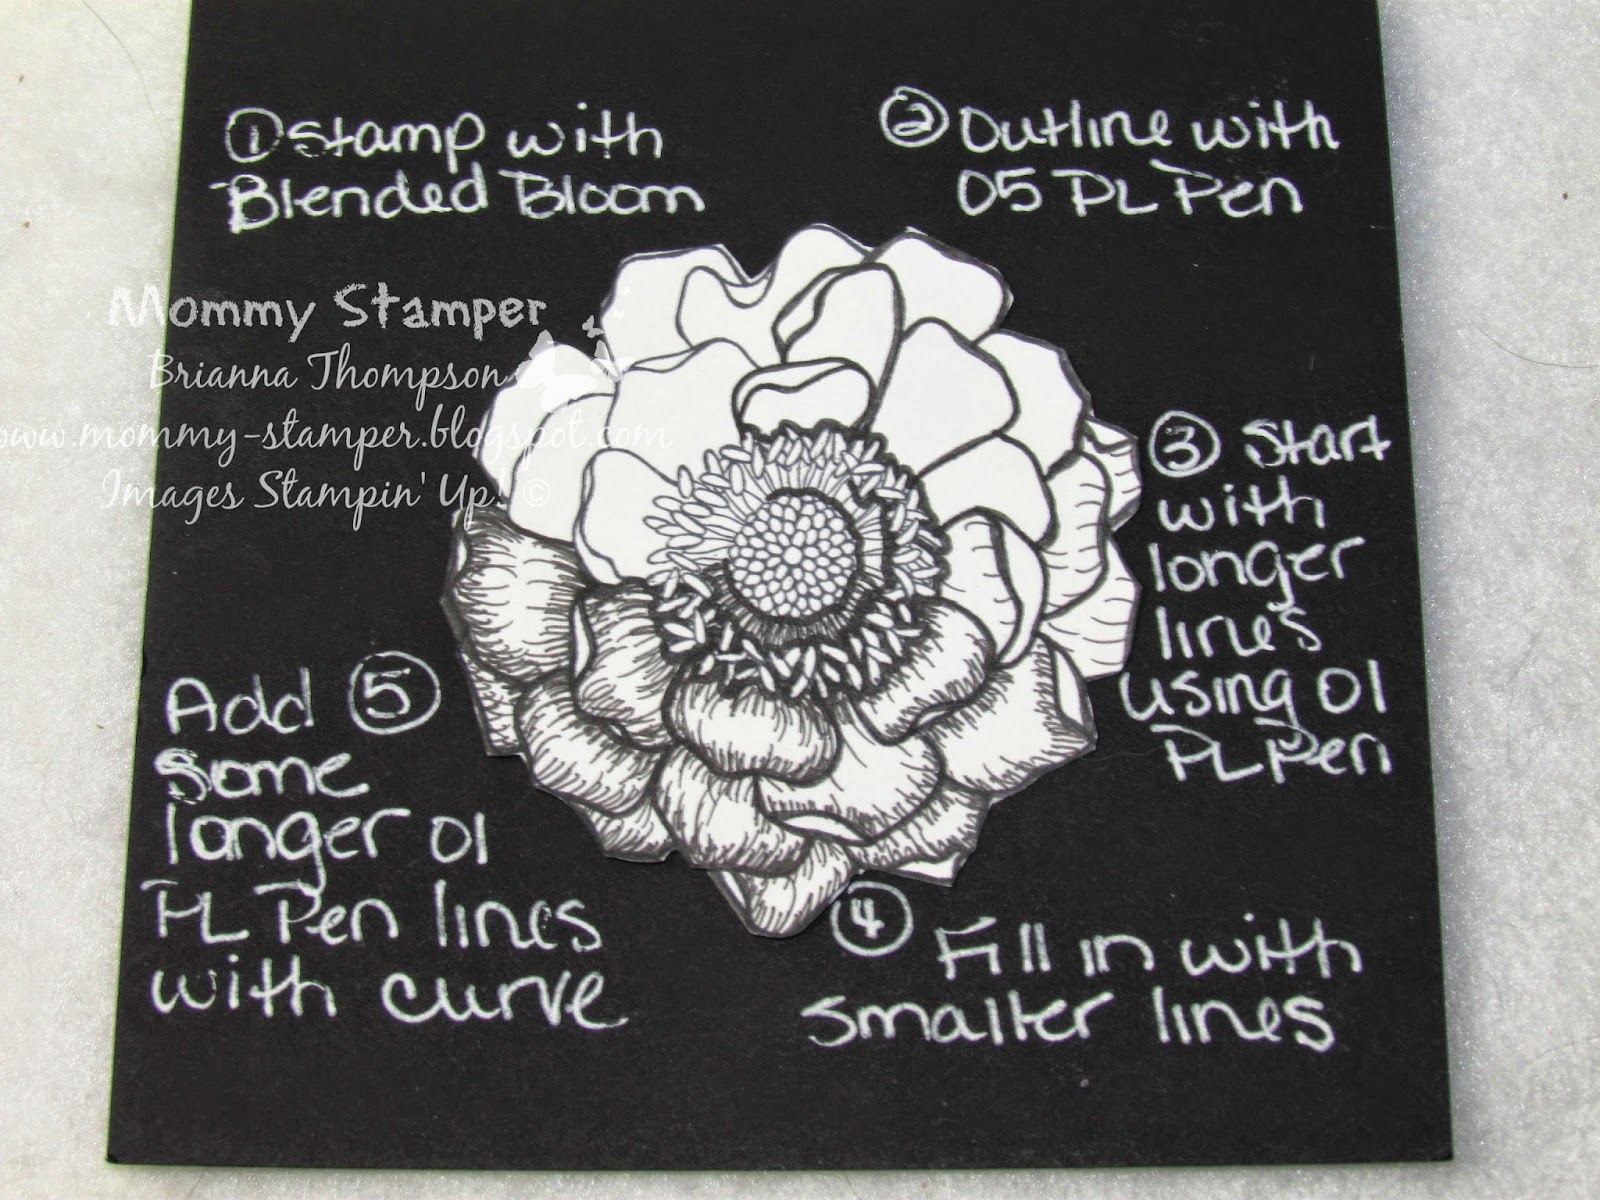 ① Stamp with
Blended Bloom
② Outline with
05 PL Pen
Mommy Stamper
Brianna Thompson
www.mommy-stamper.blogspot.com
Images Stampin' Up! ©
③ Start
with
longer
lines
using 01
PL Pen
④ Fill in with
smaller lines
Add ⑤
some
longer 01
PL Pen lines
with curve